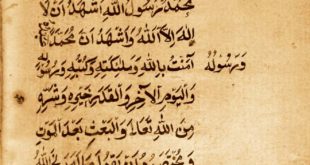 محمد رسول الله اشهد ان لا
اله الا الله واشهد ان محمدا
ورسوله
امنت بالله وملئكته وكتبه ورسوله
واليوم الآخر والقدر خيره وشره
من الله تعا والبعث بعد الموت